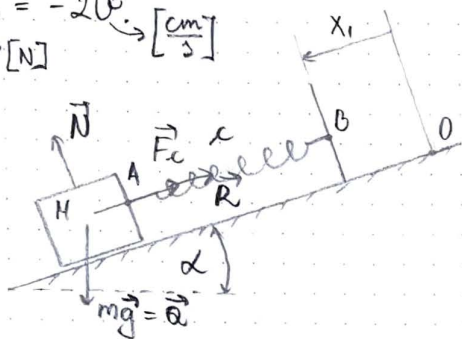 = -20. [cm/s]
[N]
X₁
N⃗
F⃗c c B O
A
M R⃗
α
mg⃗ = Q⃗